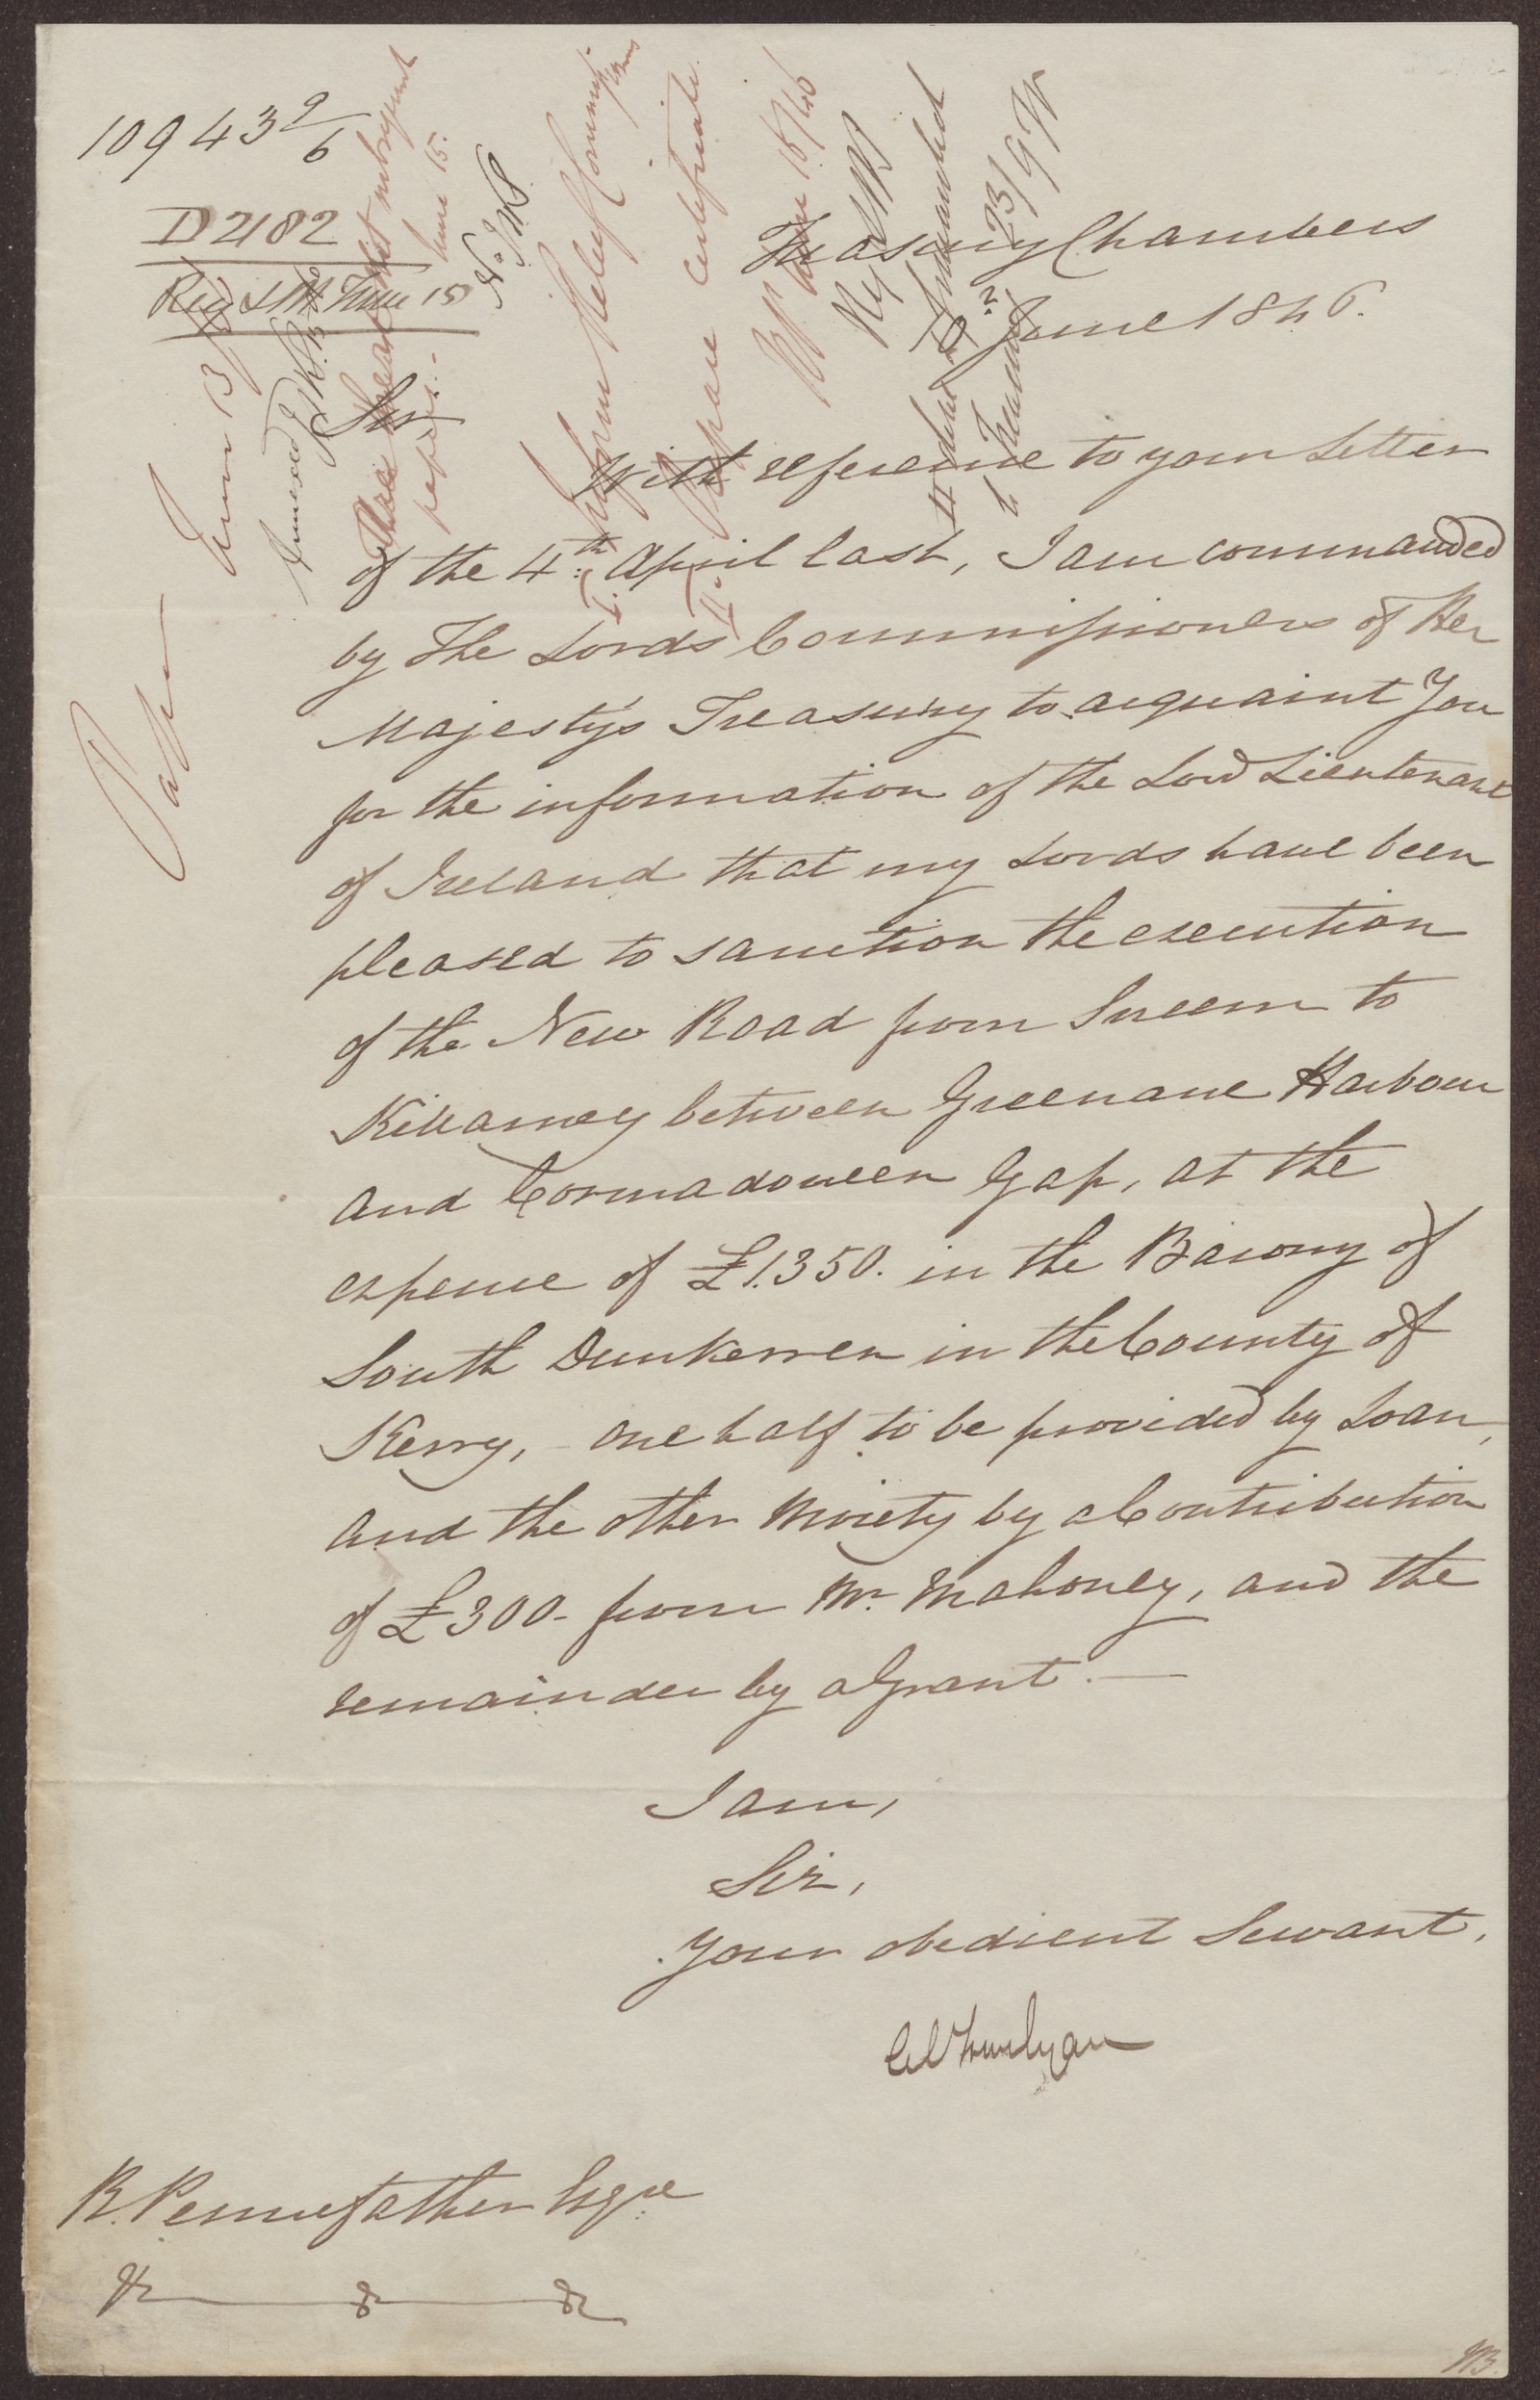 10943 9/6
D2182
June 15
Papers
June 13
Annexed
papers.-
June 15.
I. Inform Relief Commissions
II. Prepare certificate.
June 15/46
23/9
Treasury Chambers
June 1846.
Sir
With reference to your Letter
of the 4th. April last, I am commanded
by The Lords Commissioners of Her
Majesty's Treasury to acquaint You
for the information of the Lord Lieutenant
of Ireland that my Lords have been
pleased to sanction the execution
of the New Road from Sneem to
Killarney between Greenane Harbour
and Cormadoween Gap, at the
expense of £1350. in the Barony of
South Dunkerren in the County of
Kerry, - one half to be provided by Loan,
and the other Moiety by a Contribution
of £300 - from Mr. Mahoney, and the
remainder by a Grant. —
I am,
Sir,
Your obedient Servant,
C E Trevelyan
R. Pennefather Esqre
&c &c &c